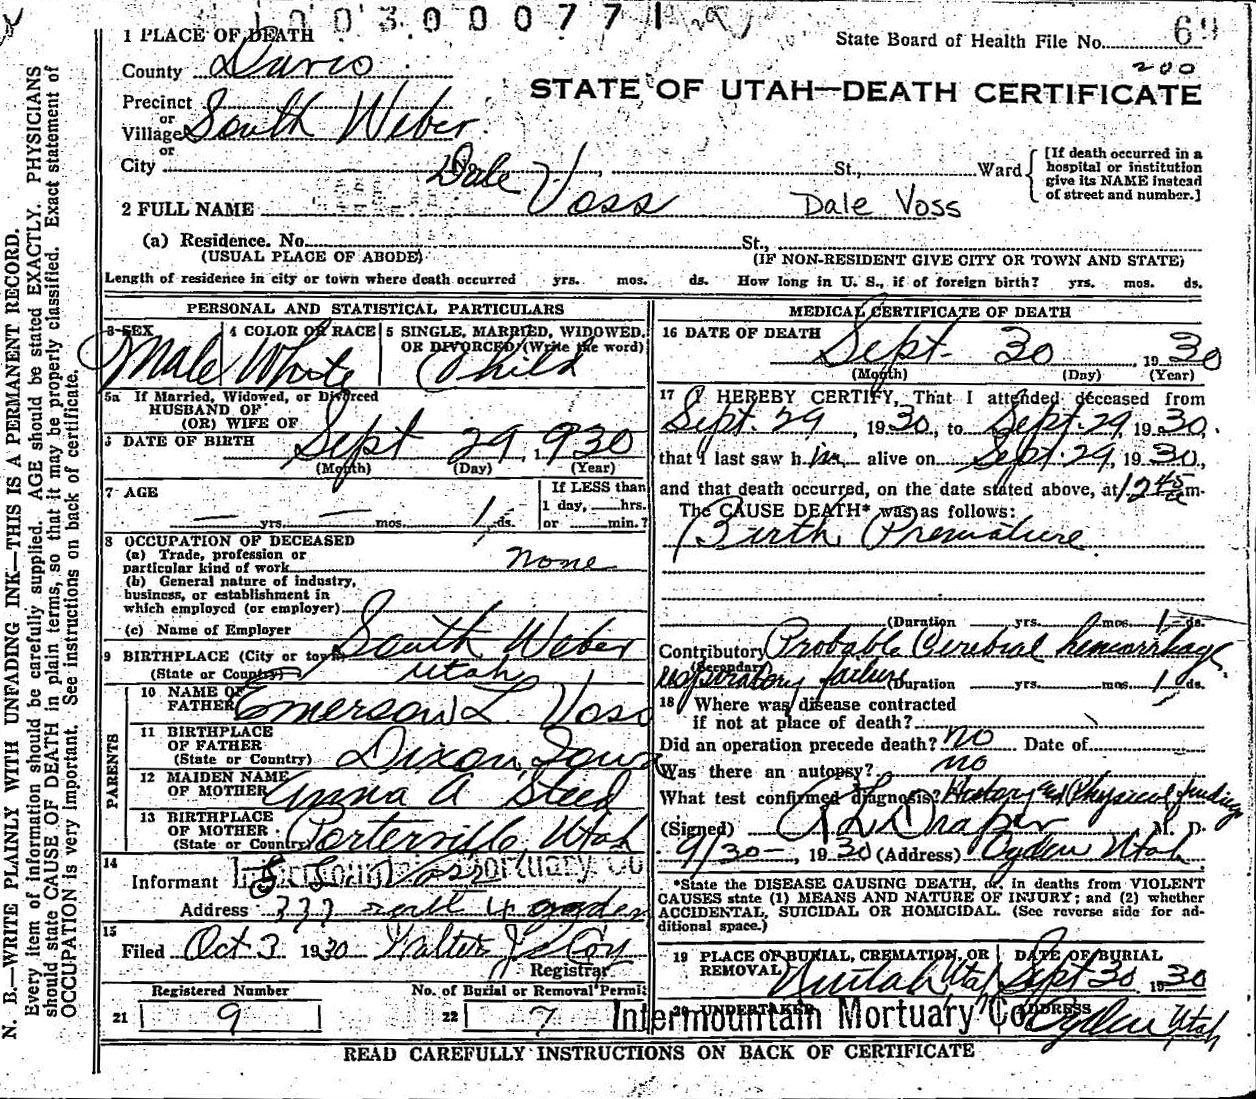 003000771
1 PLACE OF DEATH
State Board of Health File No. 69
200
County Davis
STATE OF UTAH—DEATH CERTIFICATE
Precinct
or
Village South Weber
or
City No. St., Ward
[If death occurred in a
hospital or institution
give its NAME instead
of street and number.]
2 FULL NAME Dale Voss Dale Voss
(a) Residence. No. St.,
(USUAL PLACE OF ABODE) (IF NON-RESIDENT GIVE CITY OR TOWN AND STATE)
Length of residence in city or town where death occurred yrs. mos. ds. How long in U. S., if of foreign birth? yrs. mos. ds.
PERSONAL AND STATISTICAL PARTICULARS
3 SEX 4 COLOR OR RACE 5 SINGLE, MARRIED, WIDOWED,
OR DIVORCED (Write the word)
Male White Child
5a If Married, Widowed, or Divorced
HUSBAND OF
(OR) WIFE OF
6 DATE OF BIRTH Sept 29, 1930
(Month) (Day) (Year)
7 AGE
If LESS than
1 day, hrs.
or min.?
— yrs. — mos. 1 ds.
8 OCCUPATION OF DECEASED
(a) Trade, profession or
particular kind of work none
(b) General nature of industry,
business, or establishment in
which employed (or employer)
(c) Name of Employer
9 BIRTHPLACE (City or town) South Weber
(State or Country) Utah
PARENTS
10 NAME OF
FATHER Emerson L. Voss
11 BIRTHPLACE
OF FATHER
(State or Country) Dixon, Iowa
12 MAIDEN NAME
OF MOTHER Anna A Steed
13 BIRTHPLACE
OF MOTHER
(State or Country) Porterville, Utah
14
Intermountain Mortuary Co
Informant Voss
Address 333 Ogden
15
Filed Oct 3 1930 Walter J. McCoy
Registrar
Registered Number No. of Burial or Removal Permit
21 9 22 7
MEDICAL CERTIFICATE OF DEATH
16 DATE OF DEATH
Sept. 30, 1930
(Month) (Day) (Year)
17 I HEREBY CERTIFY, That I attended deceased from
Sept. 29, 1930, to Sept. 29, 1930,
that I last saw him alive on Sept. 29, 1930,
and that death occurred, on the date stated above, at 1245 a m.
The CAUSE DEATH* was as follows:
Birth Premature
(Duration yrs. mos. 1 ds.
Contributory Probable Cerebral hemorrhage,
(Secondary)
respiratory failure (Duration yrs. mos. 1 ds.
18 Where was disease contracted
if not at place of death?
Did an operation precede death? no Date of
Was there an autopsy? no
What test confirmed diagnosis? History and Physical findings
(Signed) Draper M. D.
9/30—, 1930 (Address) Ogden Utah
*State the DISEASE CAUSING DEATH, or, in deaths from VIOLENT
CAUSES state (1) MEANS AND NATURE OF INJURY; and (2) whether
ACCIDENTAL, SUICIDAL OR HOMICIDAL. (See reverse side for ad-
ditional space.)
19 PLACE OF BURIAL, CREMATION, OR
REMOVAL Uintah Utah
DATE OF BURIAL
Sept 30 1930
20 UNDERTAKER ADDRESS
Intermountain Mortuary Co. Ogden Utah
READ CAREFULLY INSTRUCTIONS ON BACK OF CERTIFICATE
N. B.—WRITE PLAINLY WITH UNFADING INK—THIS IS A PERMANENT RECORD.
Every item of information should be carefully supplied. AGE should be stated EXACTLY. PHYSICIANS
should state CAUSE OF DEATH in plain terms, so that it may be properly classified. Exact statement of
OCCUPATION is very important. See instructions on back of certificate.